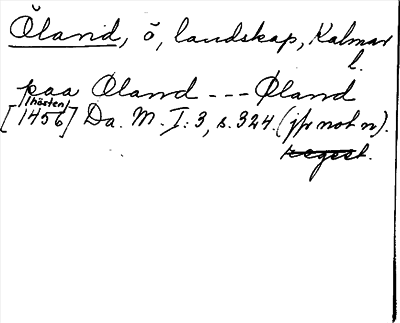 Öland, ö, landskap, Kalmar
l.
paa Øland --- Øland
[hösten/1456] Da. M. I:3, s. 324. (jfr not n).
regest.